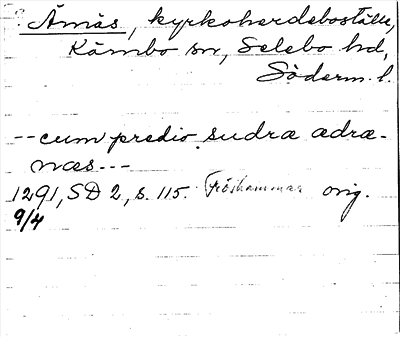 ? Åmäs, kyrkoherdeboställe,
Kärnbo sn, Selebo hd,
Söderm. l.
-- cum predio sudræ ædræ-
næs ---
1291, SD 2, s. 115. Fröshammar orig.
9/4